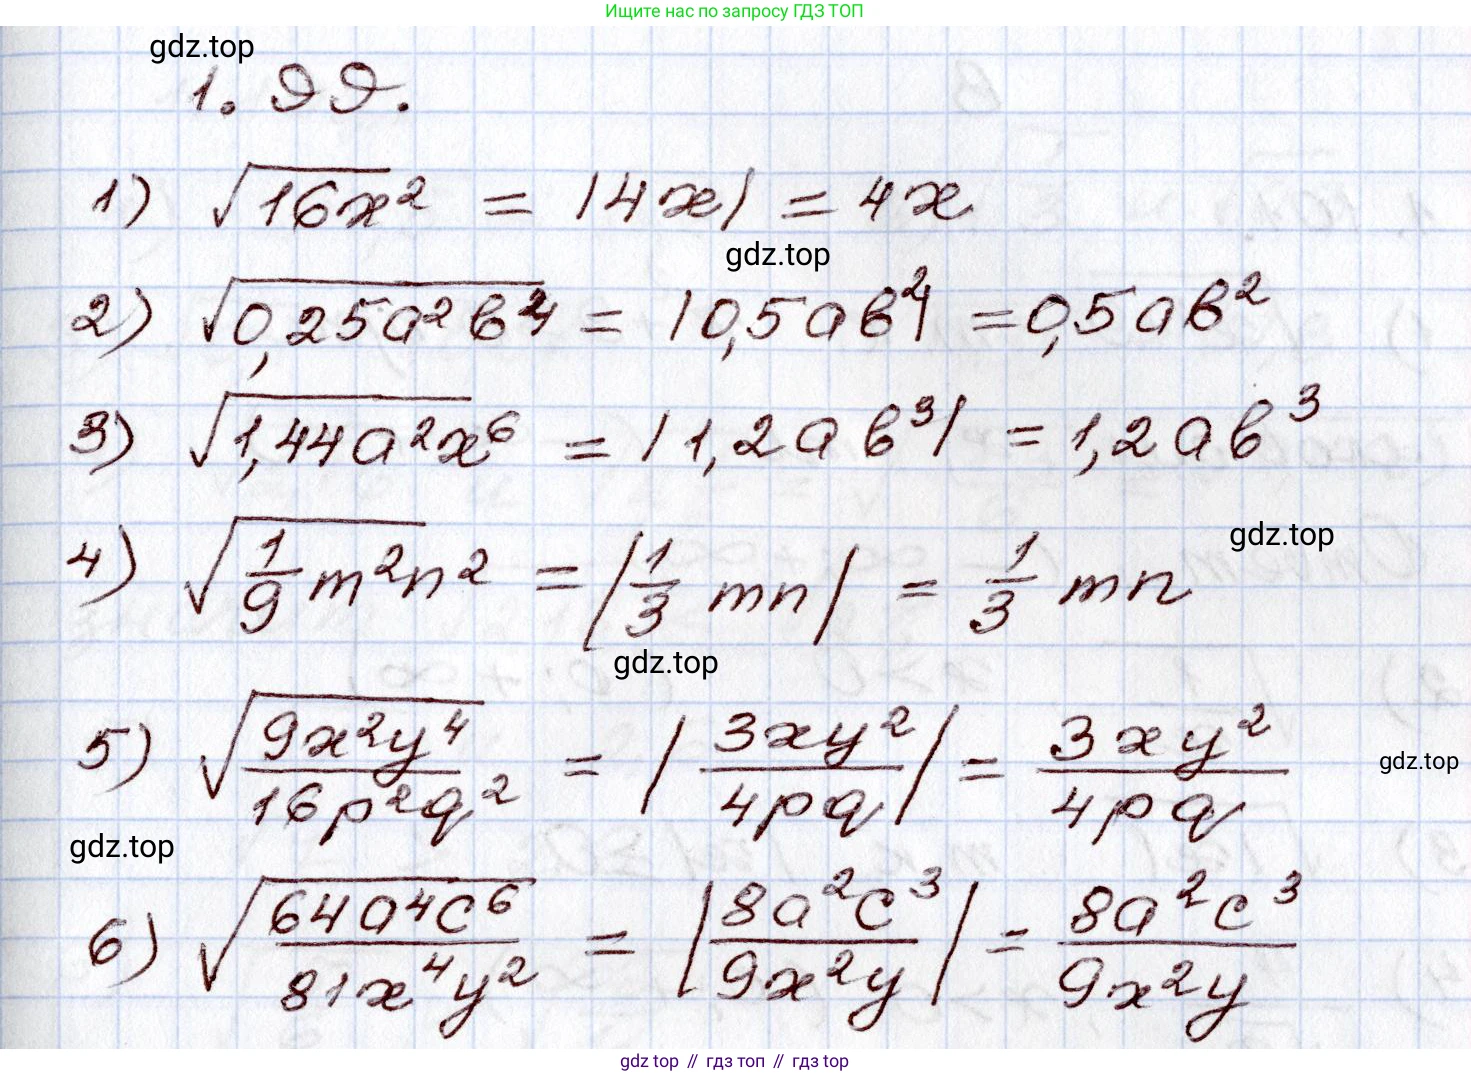 Ищите нас по запросу ГДЗ ТОП
gdz.top
1.99.
1) √16x² = |4x| = 4x
gdz.top
2) √0,25a²b⁴ = |0,5ab²| = 0,5ab²
3) √1,44a²x⁶ = |1,2ab³| = 1,2ab³
gdz.top
4) √1/9 m²n² = |1/3 mn| = 1/3 mn
gdz.top
5) √9x²y⁴/16p²q² = |3xy²/4pq| = 3xy²/4pq
gdz.top
gdz.top
6) √64a⁴c⁶/81x⁴y² = |8a²c³/9x²y| = 8a²c³/9x²y
gdz top // гдз топ // gdz top